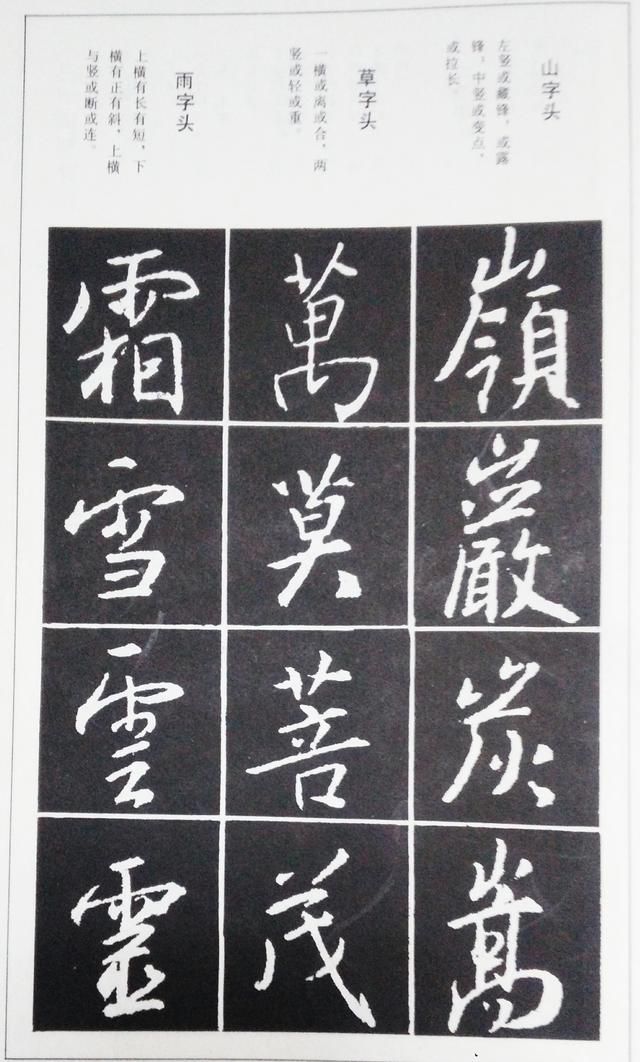 山字头
左竖或藏锋，或露
锋，中竖或变点，
或拉长。
嶺
巖
炭
嵩
草字头
一横或离或合，两
竖或轻或重。
萬
莫
菩
茂
雨字头
上横有长有短，下
横有正有斜，上横
与竖或断或连。
霜
雪
雲
靈